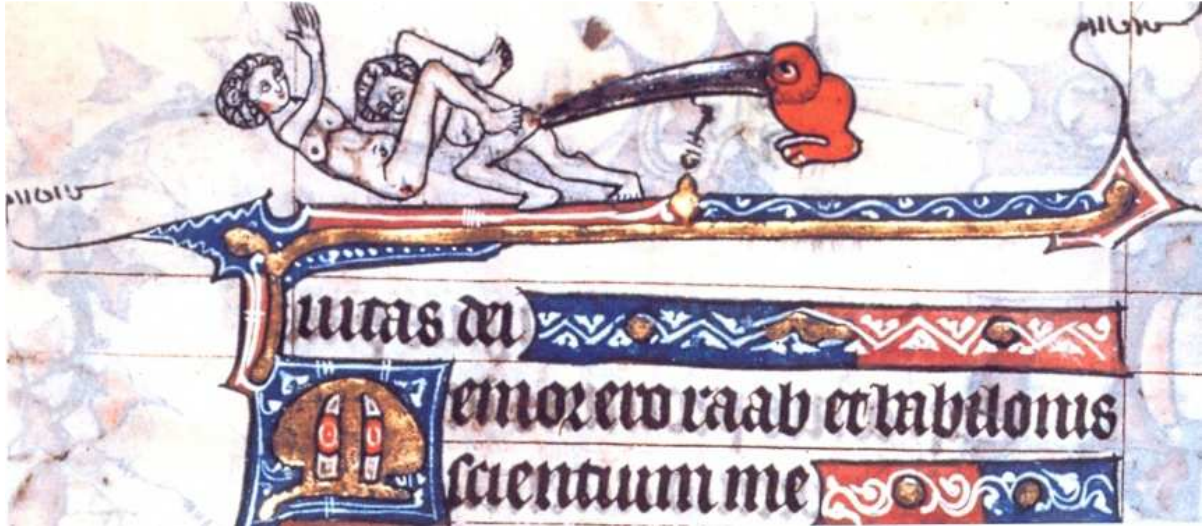 iuitas dei
emor ero raab et babilonis
scientium me